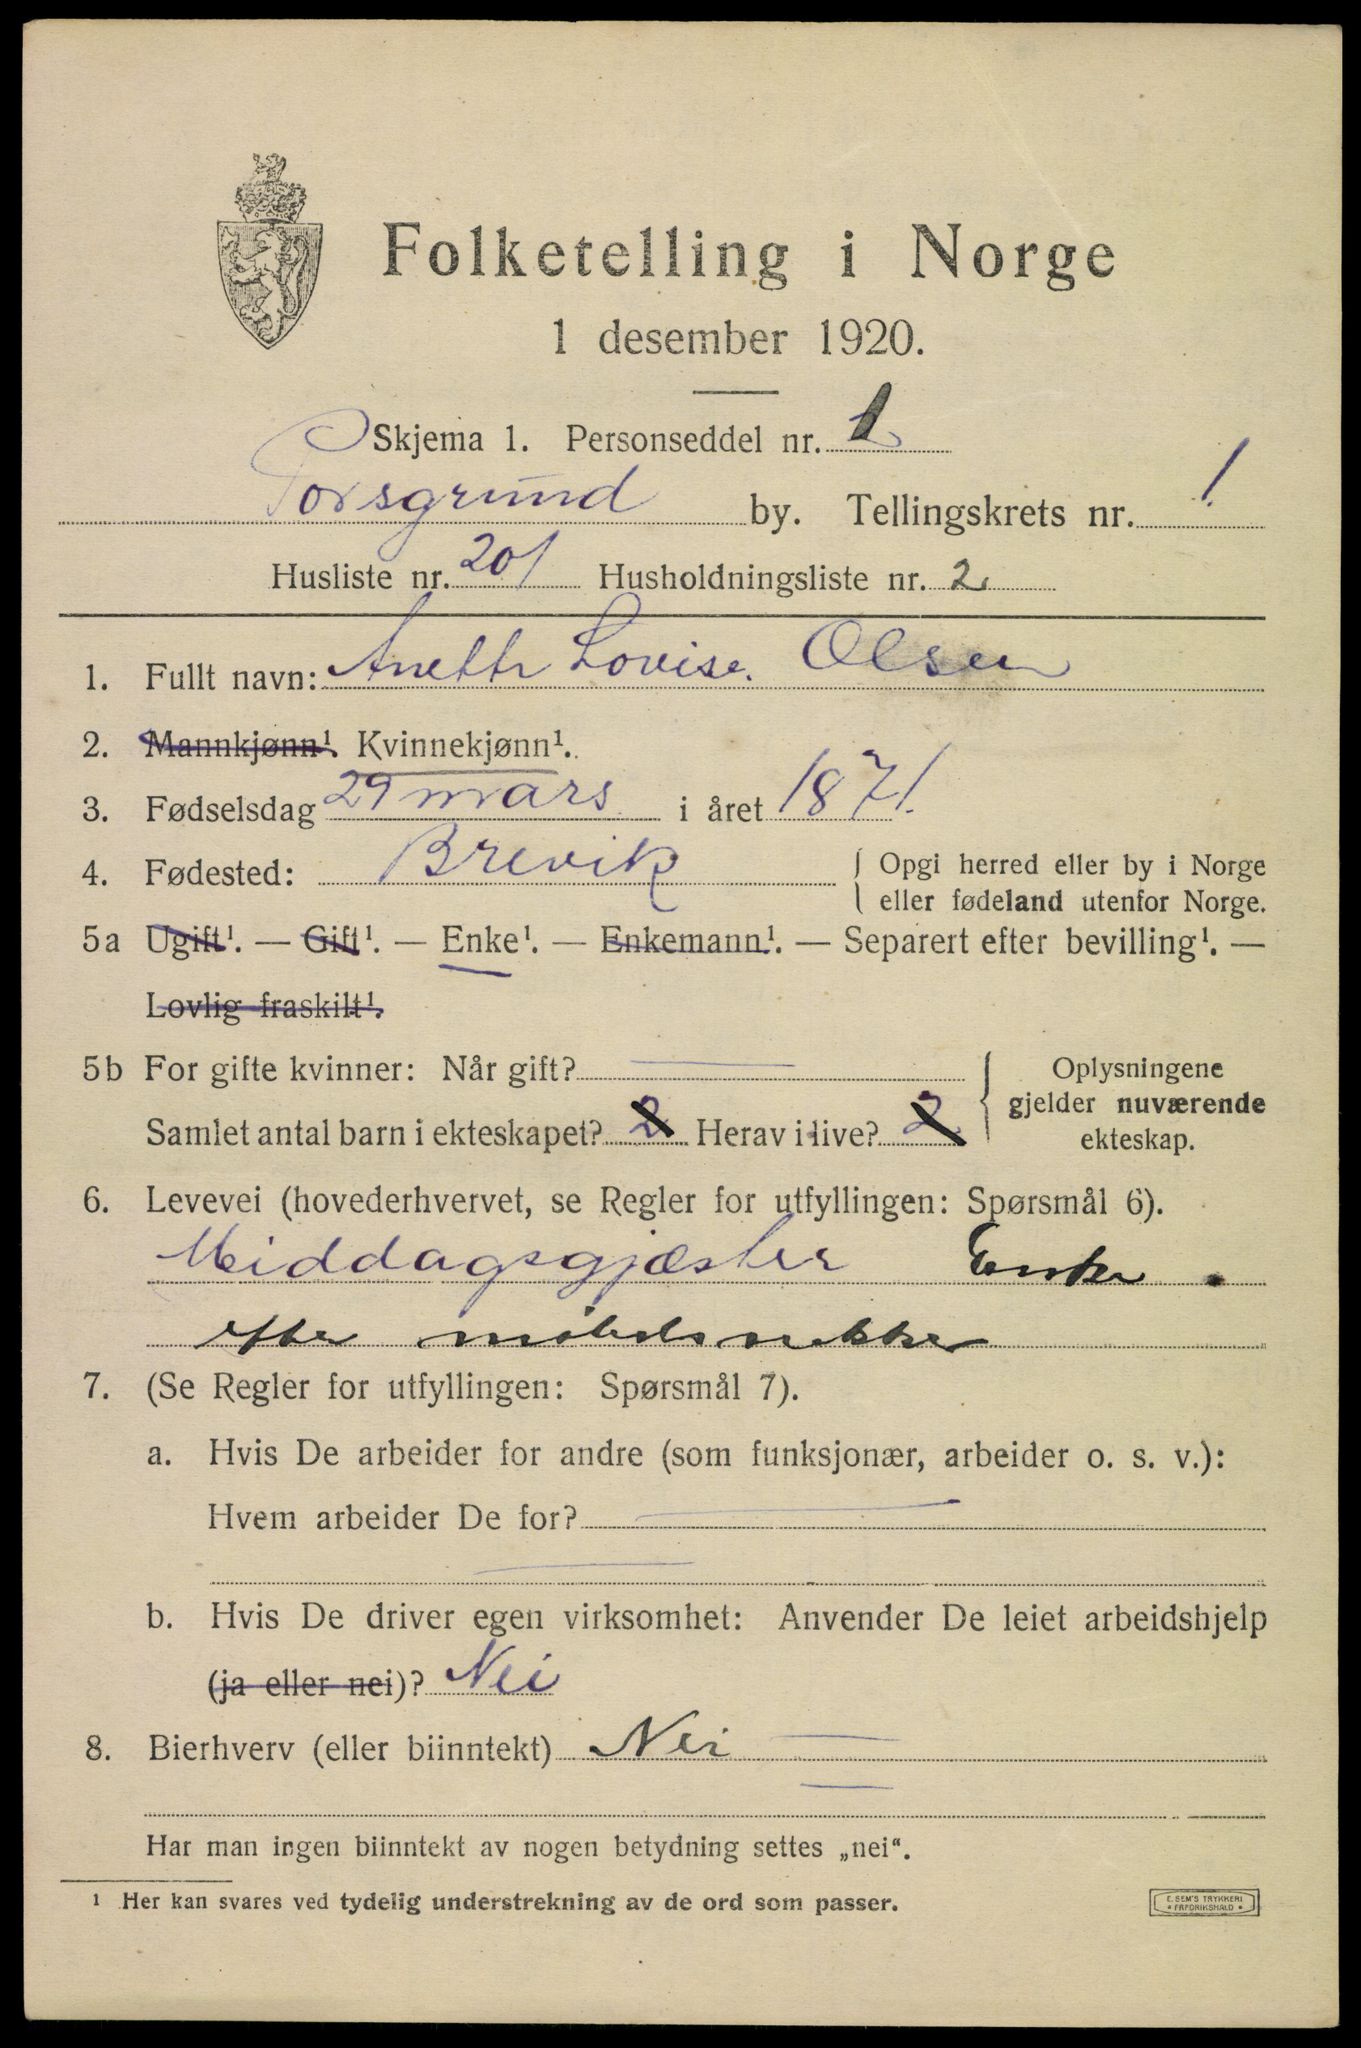 Folketelling i Norge
1 desember 1920.
Skjema 1. Personseddel nr. 1
Porsgrund by. Tellingskrets nr. 1
Husliste nr. 201 Husholdningsliste nr. 2
1. Fullt navn: Anette Lovise Olsen
2. Mannkjønn¹. Kvinnekjønn¹.
3. Fødselsdag 29 mars i året 1871.
4. Fødested: Brevik { Opgi herred eller by i Norge
eller fødeland utenfor Norge.
5a Ugift¹. — Gift¹. — Enke¹. — Enkemann¹. — Separert efter bevilling¹. —
Lovlig fraskilt¹.
5b For gifte kvinner: Når gift? — { Oplysningene
gjelder nuværende
ekteskap.
Samlet antal barn i ekteskapet? 2 Herav i live? 2
6. Levevei (hovederhvervet, se Regler for utfyllingen: Spørsmål 6).
Middagsgjæster Enke
efter møbelsnekker
7. (Se Regler for utfyllingen: Spørsmål 7).
a. Hvis De arbeider for andre (som funksjonær, arbeider o. s. v.):
Hvem arbeider De for? —
b. Hvis De driver egen virksomhet: Anvender De leiet arbeidshjelp
(ja eller nei)? Nei
8. Bierhverv (eller biinntekt) Nei
Har man ingen biinntekt av nogen betydning settes „nei“.
¹ Her kan svares ved tydelig understrekning av de ord som passer.
E. SEM'S TRYKKERI
* FREDRIKSHALD *